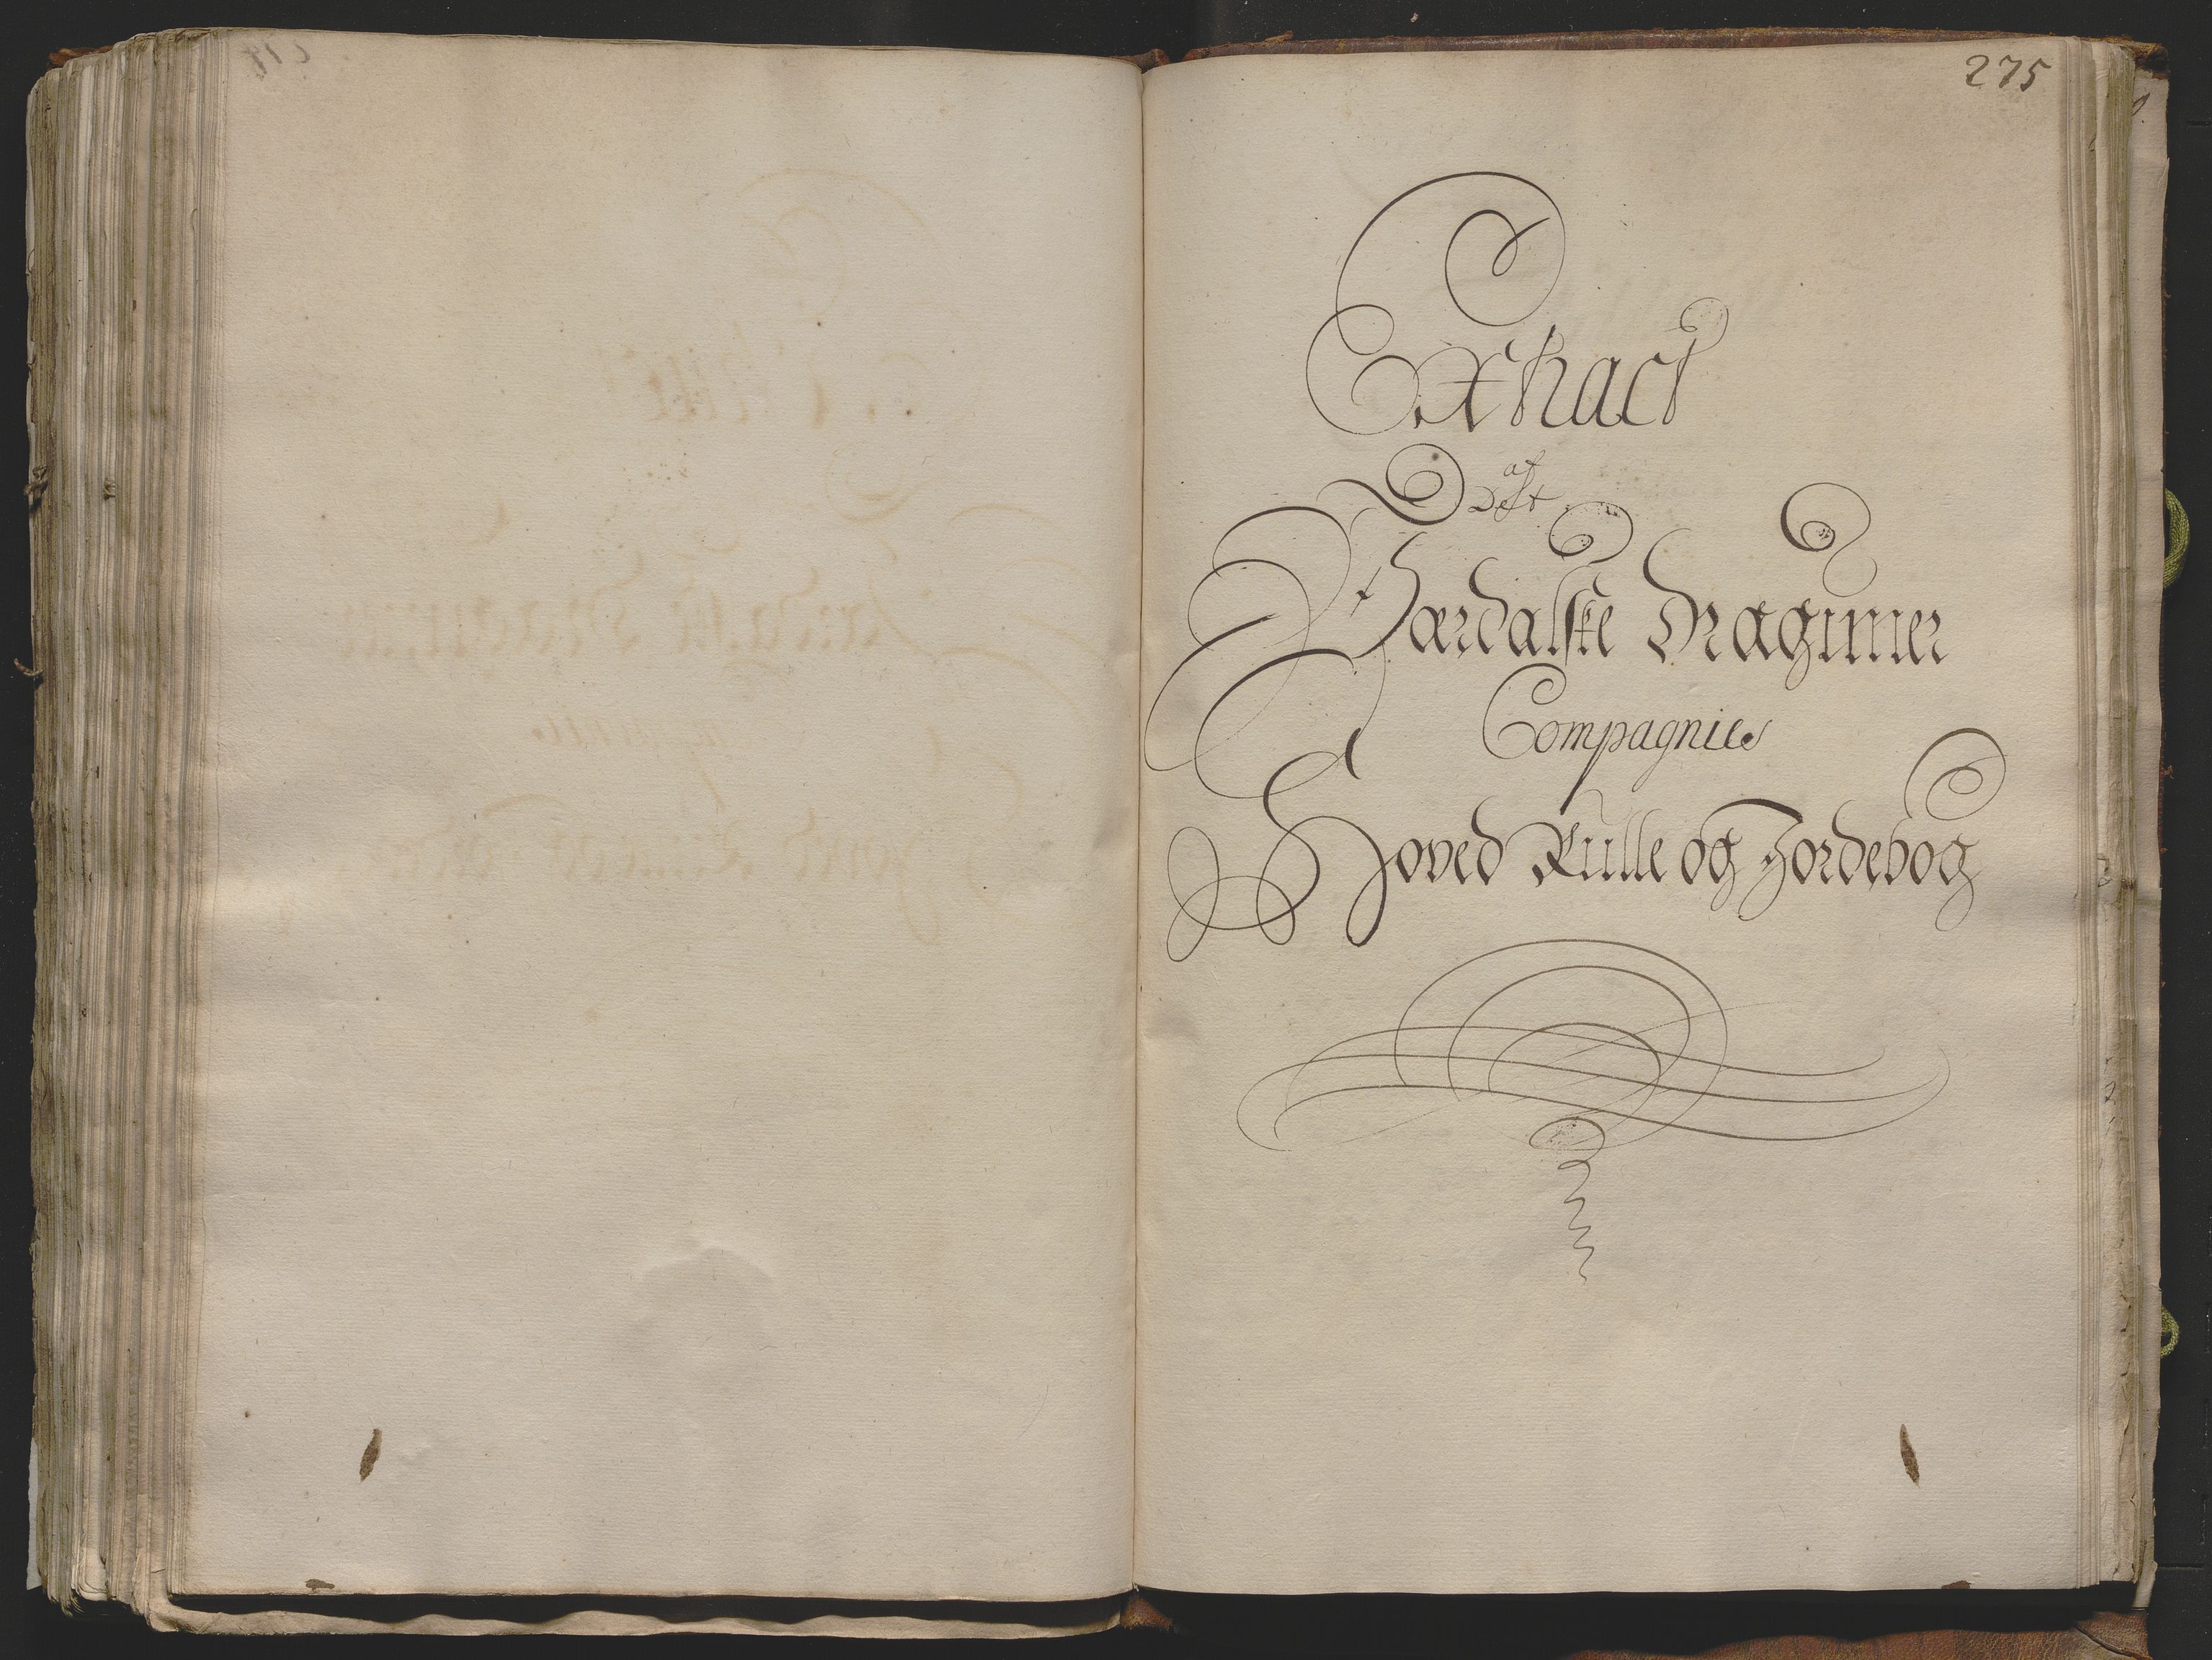 275
Extract
af
Det
Værdalske Draguner
Compagnies
Hoved Rulle og Jordebog